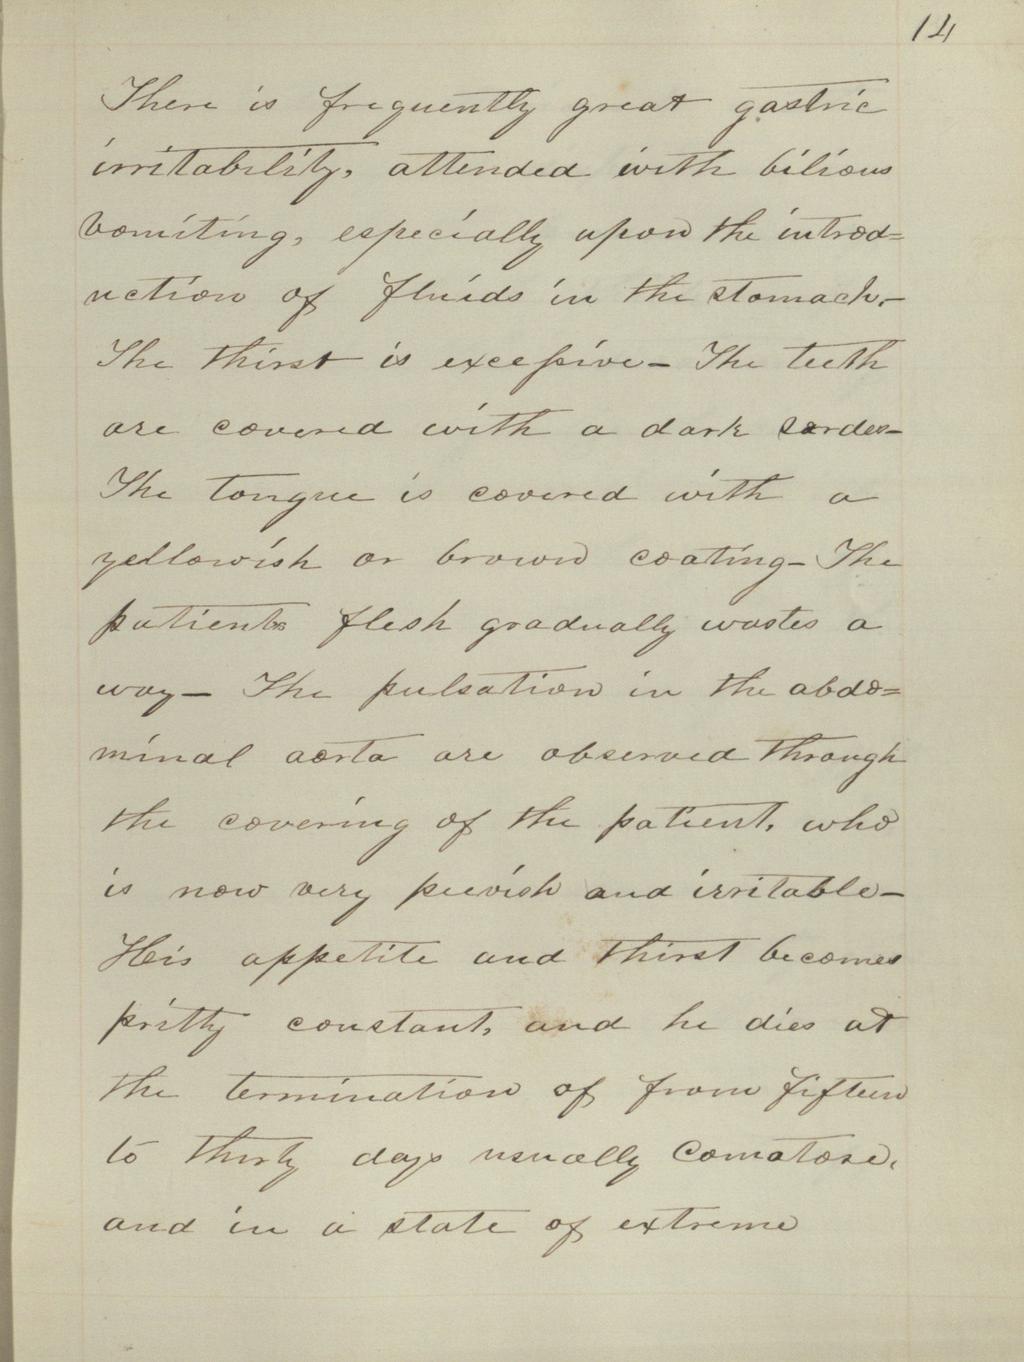 14
There is frequently great gastric
irritability, attended with bilious
vomiting, especially upon the introd=
uction of fluids in the stomach.–
The thirst is excessive – The teeth
are covered with a dark sordes–
The tongue is covered with a
yellowish or brown coating – The
patients flesh gradually wastes a
way – The pulsation in the abdo=
minal aorta are observed through
the covering of the patient, who
is now very peevish and irritable –
His appetite and thirst becomes
pritty constant, and he dies at
the termination of from fifteen
to thirty days usually Comatose,
and in a state of extreme